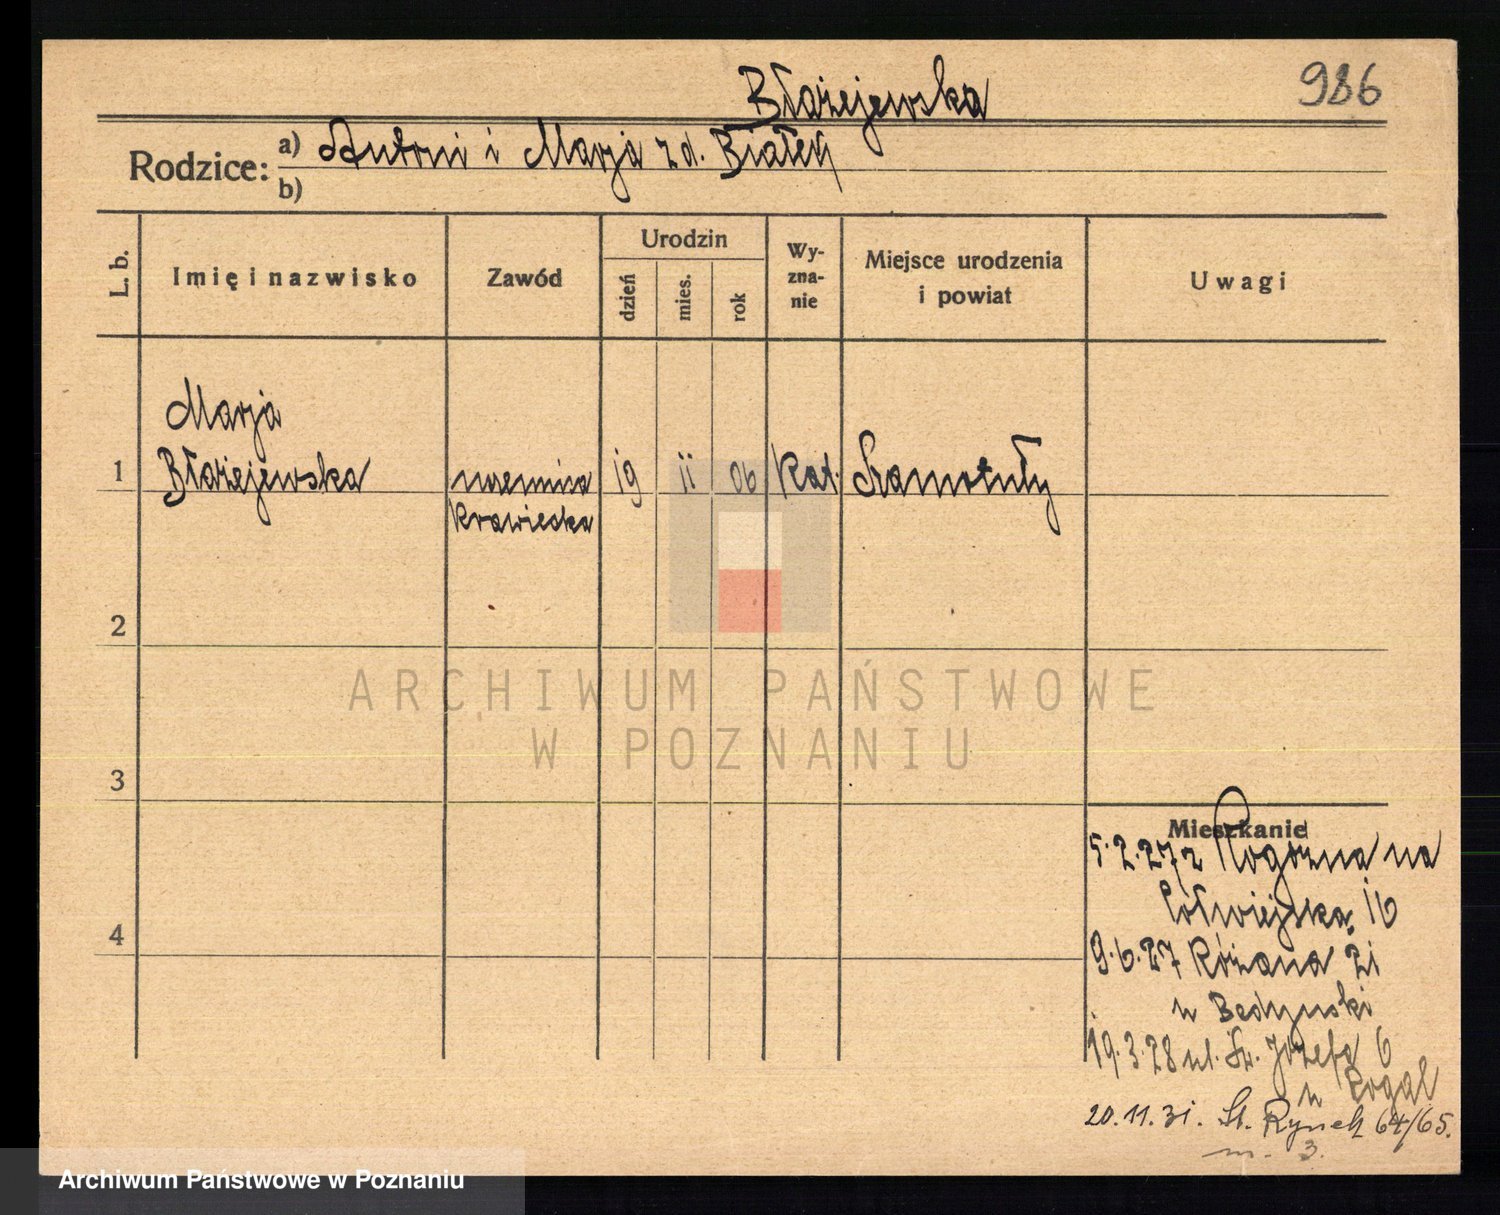 986
Błażejewska
Rodzice: a) Antoni i Marja z d. Białek
b)
L. b.
Imię i nazwisko
Zawód
Urodzin
dzień
mies.
rok
Wy-
zna-
nie
Miejsce urodzenia
i powiat
Uwagi
Marja
1 Błażejewska uczennica 19 11 06 Kat. Szamotuły
krawiecka
2
3
4
Mieszkanie
5.2.27 z Rogoźna na
Półwiejską 16
9.6.27 Różana 21
u
19.3.28 ul. Św. Józefa 6
u Rogal
20.11.31. St. Rynek 64/65.
m. 3.
ARCHIWUM PAŃSTWOWE
W POZNANIU
Archiwum Państwowe w Poznaniu